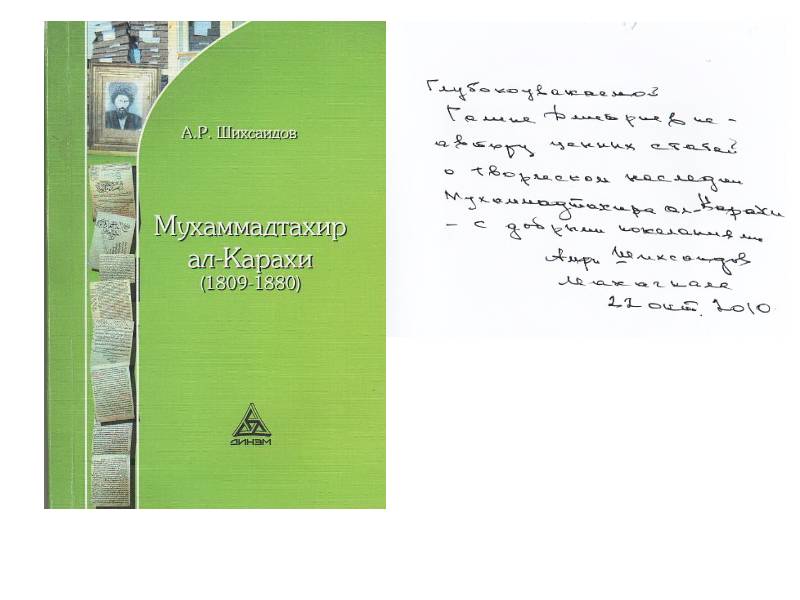 А.Р. Шихсаидов
Мухаммадтахир
ал-Карахи
(1809-1880)
ДИНЭМ
Глубокоуважаемой
Галине Дмитриевне -
автору ценных статей
о творческом наследии
Мухаммадтахира ал-Карахи
- с добрыми пожеланиями
Амри Шихсаидов
Махачкала
22 окт. 2010